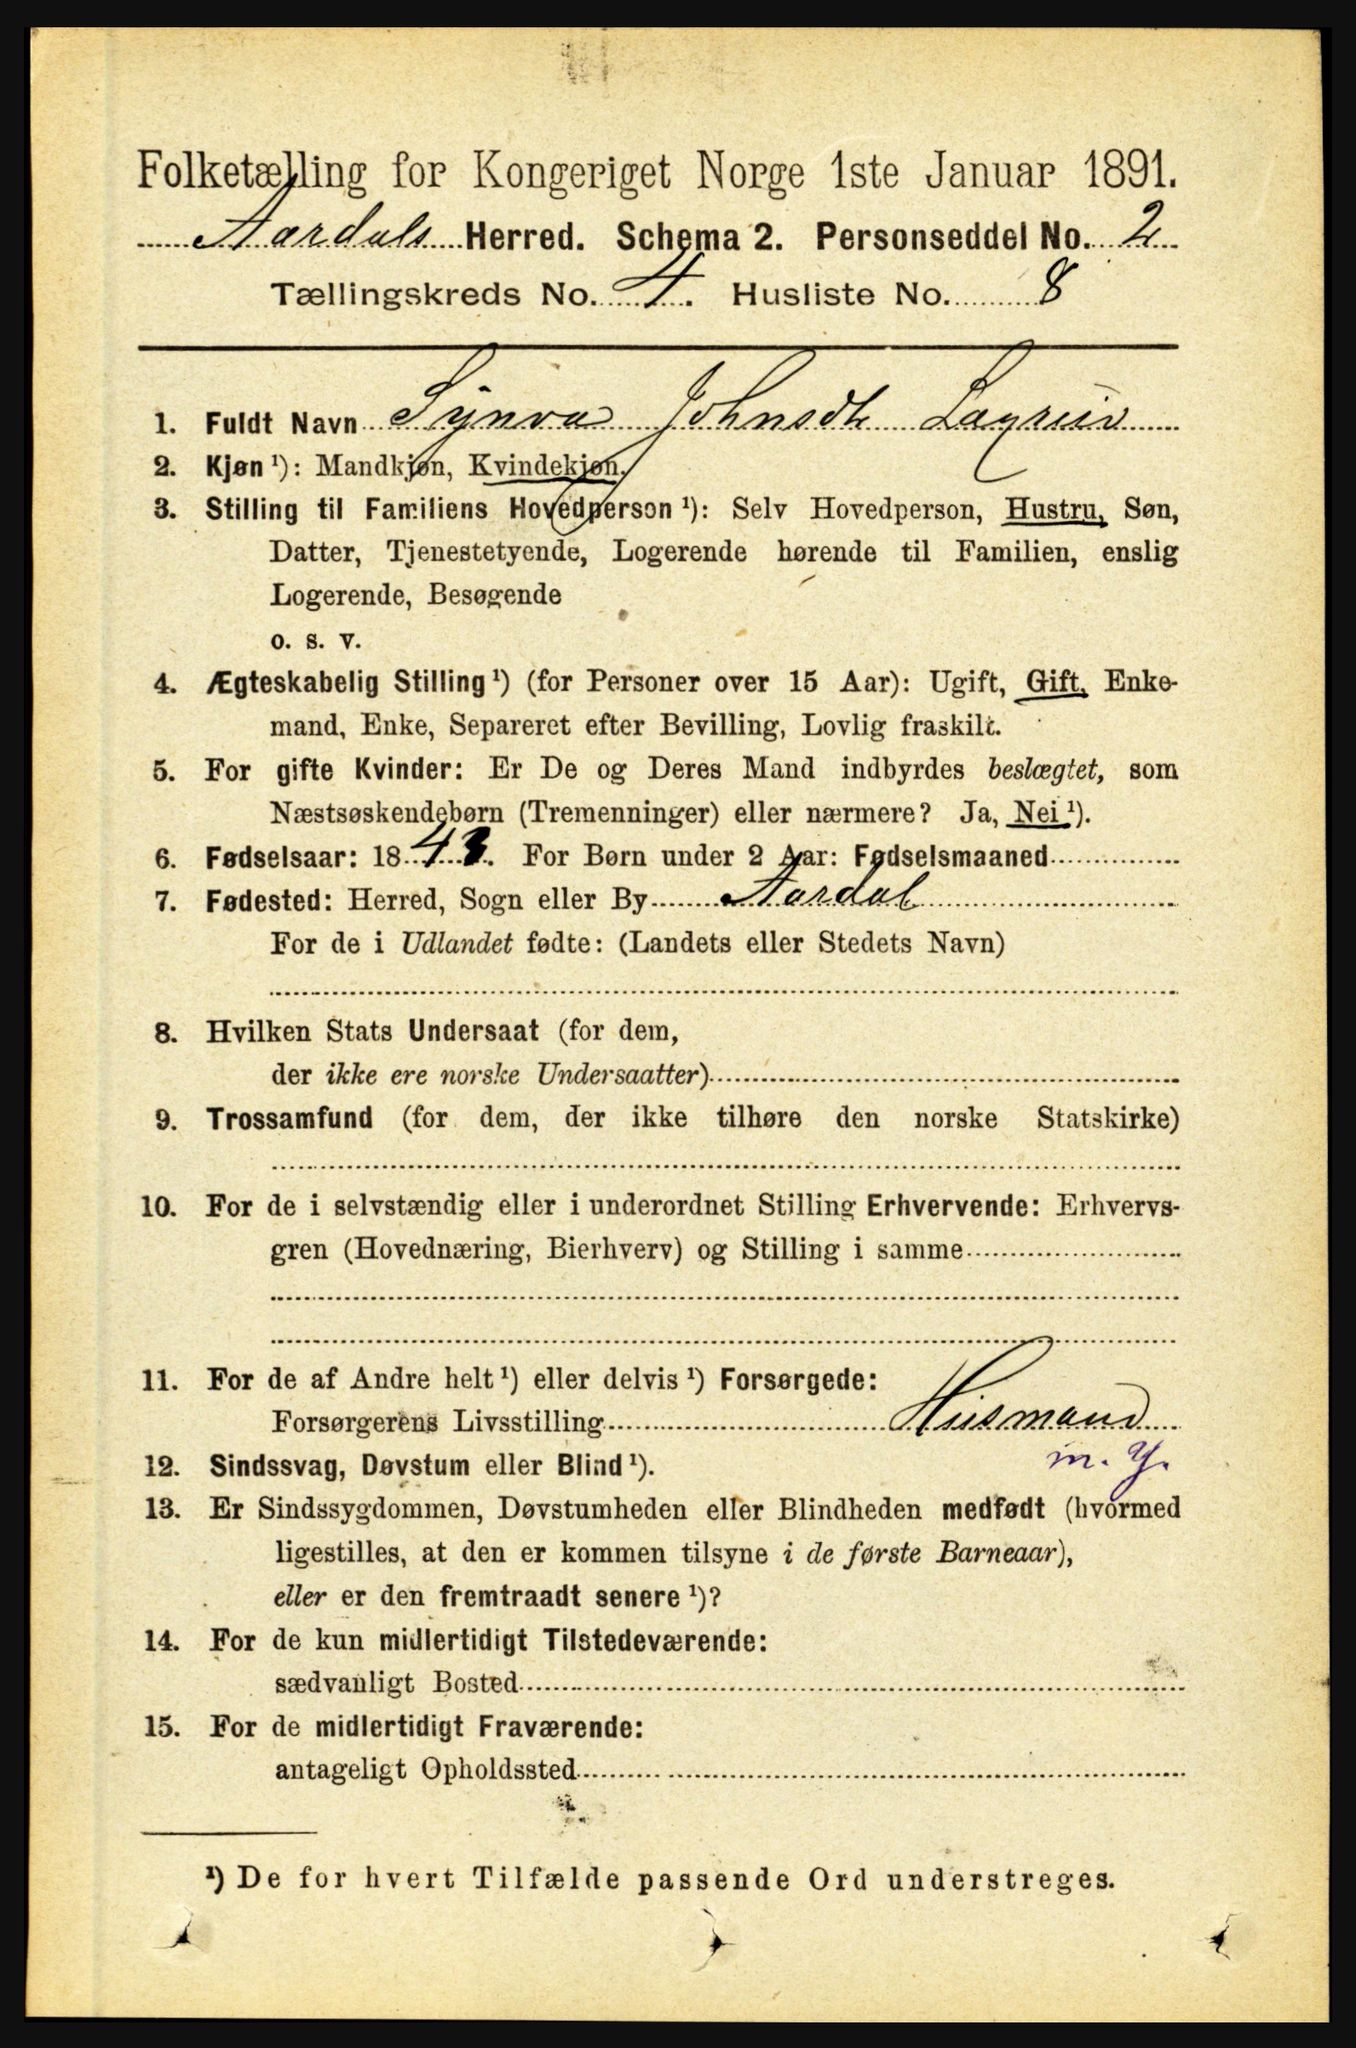 Folketælling for Kongeriget Norge 1ste Januar 1891.
Aardals Herred. Schema 2. Personseddel No. 2
Tællingskreds No. 4. Husliste No. 8
1. Fuldt Navn Synva Johnsdtr
2. Kjøn ¹): Mandkjøn, Kvindekjøn.
3. Stilling til Familiens Hovedperson ¹): Selv Hovedperson, Hustru, Søn,
Datter, Tjenestetyende, Logerende hørende til Familien, enslig
Logerende, Besøgende
o. s. v.
4. Ægteskabelig Stilling ¹) (for Personer over 15 Aar): Ugift, Gift, Enke-
mand, Enke, Separeret efter Bevilling, Lovlig fraskilt.
5. For gifte Kvinder: Er De og Deres Mand indbyrdes beslægtet, som
Næstsøskendebørn (Tremenninger) eller nærmere? Ja, Nei ¹).
6. Fødselsaar: 1843. For Børn under 2 Aar: Fødselsmaaned
7. Fødested: Herred, Sogn eller By Aardal
For de i Udlandet fødte: (Landets eller Stedets Navn)
8. Hvilken Stats Undersaat (for dem,
der ikke ere norske Undersaatter)
9. Trossamfund (for dem, der ikke tilhøre den norske Statskirke)
10. For de i selvstændig eller i underordnet Stilling Erhvervende: Erhvervs-
gren (Hovednæring, Bierhverv) og Stilling i samme
11. For de af Andre helt ¹) eller delvis ¹) Forsørgede:
Forsørgerens Livsstilling Husmand
12. Sindssvag, Døvstum eller Blind ¹). m. J.
13. Er Sindssygdommen, Døvstumheden eller Blindheden medfødt (hvormed
ligestilles, at den er kommen tilsyne i de første Barneaar),
eller er den fremtraadt senere ¹)?
14. For de kun midlertidigt Tilstedeværende:
sædvanligt Bosted
15. For de midlertidigt Fraværende:
antageligt Opholdssted
¹) De for hvert Tilfælde passende Ord understreges.